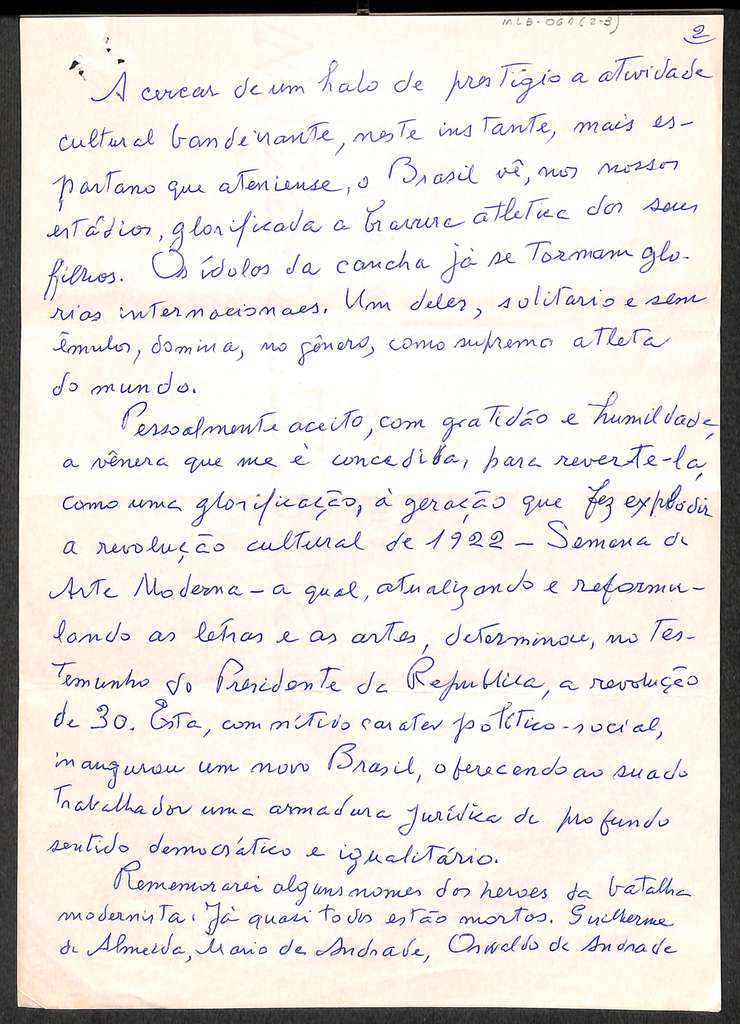 MLB-061(2-3)
2
A cercar de um halo de prestígio a atividade
cultural bandeirante, neste instante, mais es-
partano que ateniense, o Brasil vê, nos nossos
estádios, glorificada a bravura atletica dos seus
filhos. Os ídolos da cancha já se tornam gló-
rias internacionaes. Um deles, solitario e sem
êmulos, domina, no gênero, como supremo atleta
do mundo.
Pessoalmente aceito, com gratidão e humildade,
a vênera que me é concedida, para reverte-la,
como uma glorificação, à geração que fez explodir
a revolução cultural de 1922 – Semana de
Arte Moderna – a qual, atualizando e reformu-
lando as letras e as artes, determinou, no tes-
temunho do Presidente da Republica, a revolução
de 30. Esta, com nítido carater político-social,
inaugurou um novo Brasil, oferecendo ao suado
trabalhador uma armadura jurídica de profundo
sentido democrático e igualitário.
Rememorarei alguns nomes dos heroes da batalha
modernista. Já quasi todos estão mortos. Guilherme
de Almeida, Mario de Andrade, Oswaldo de Andrade